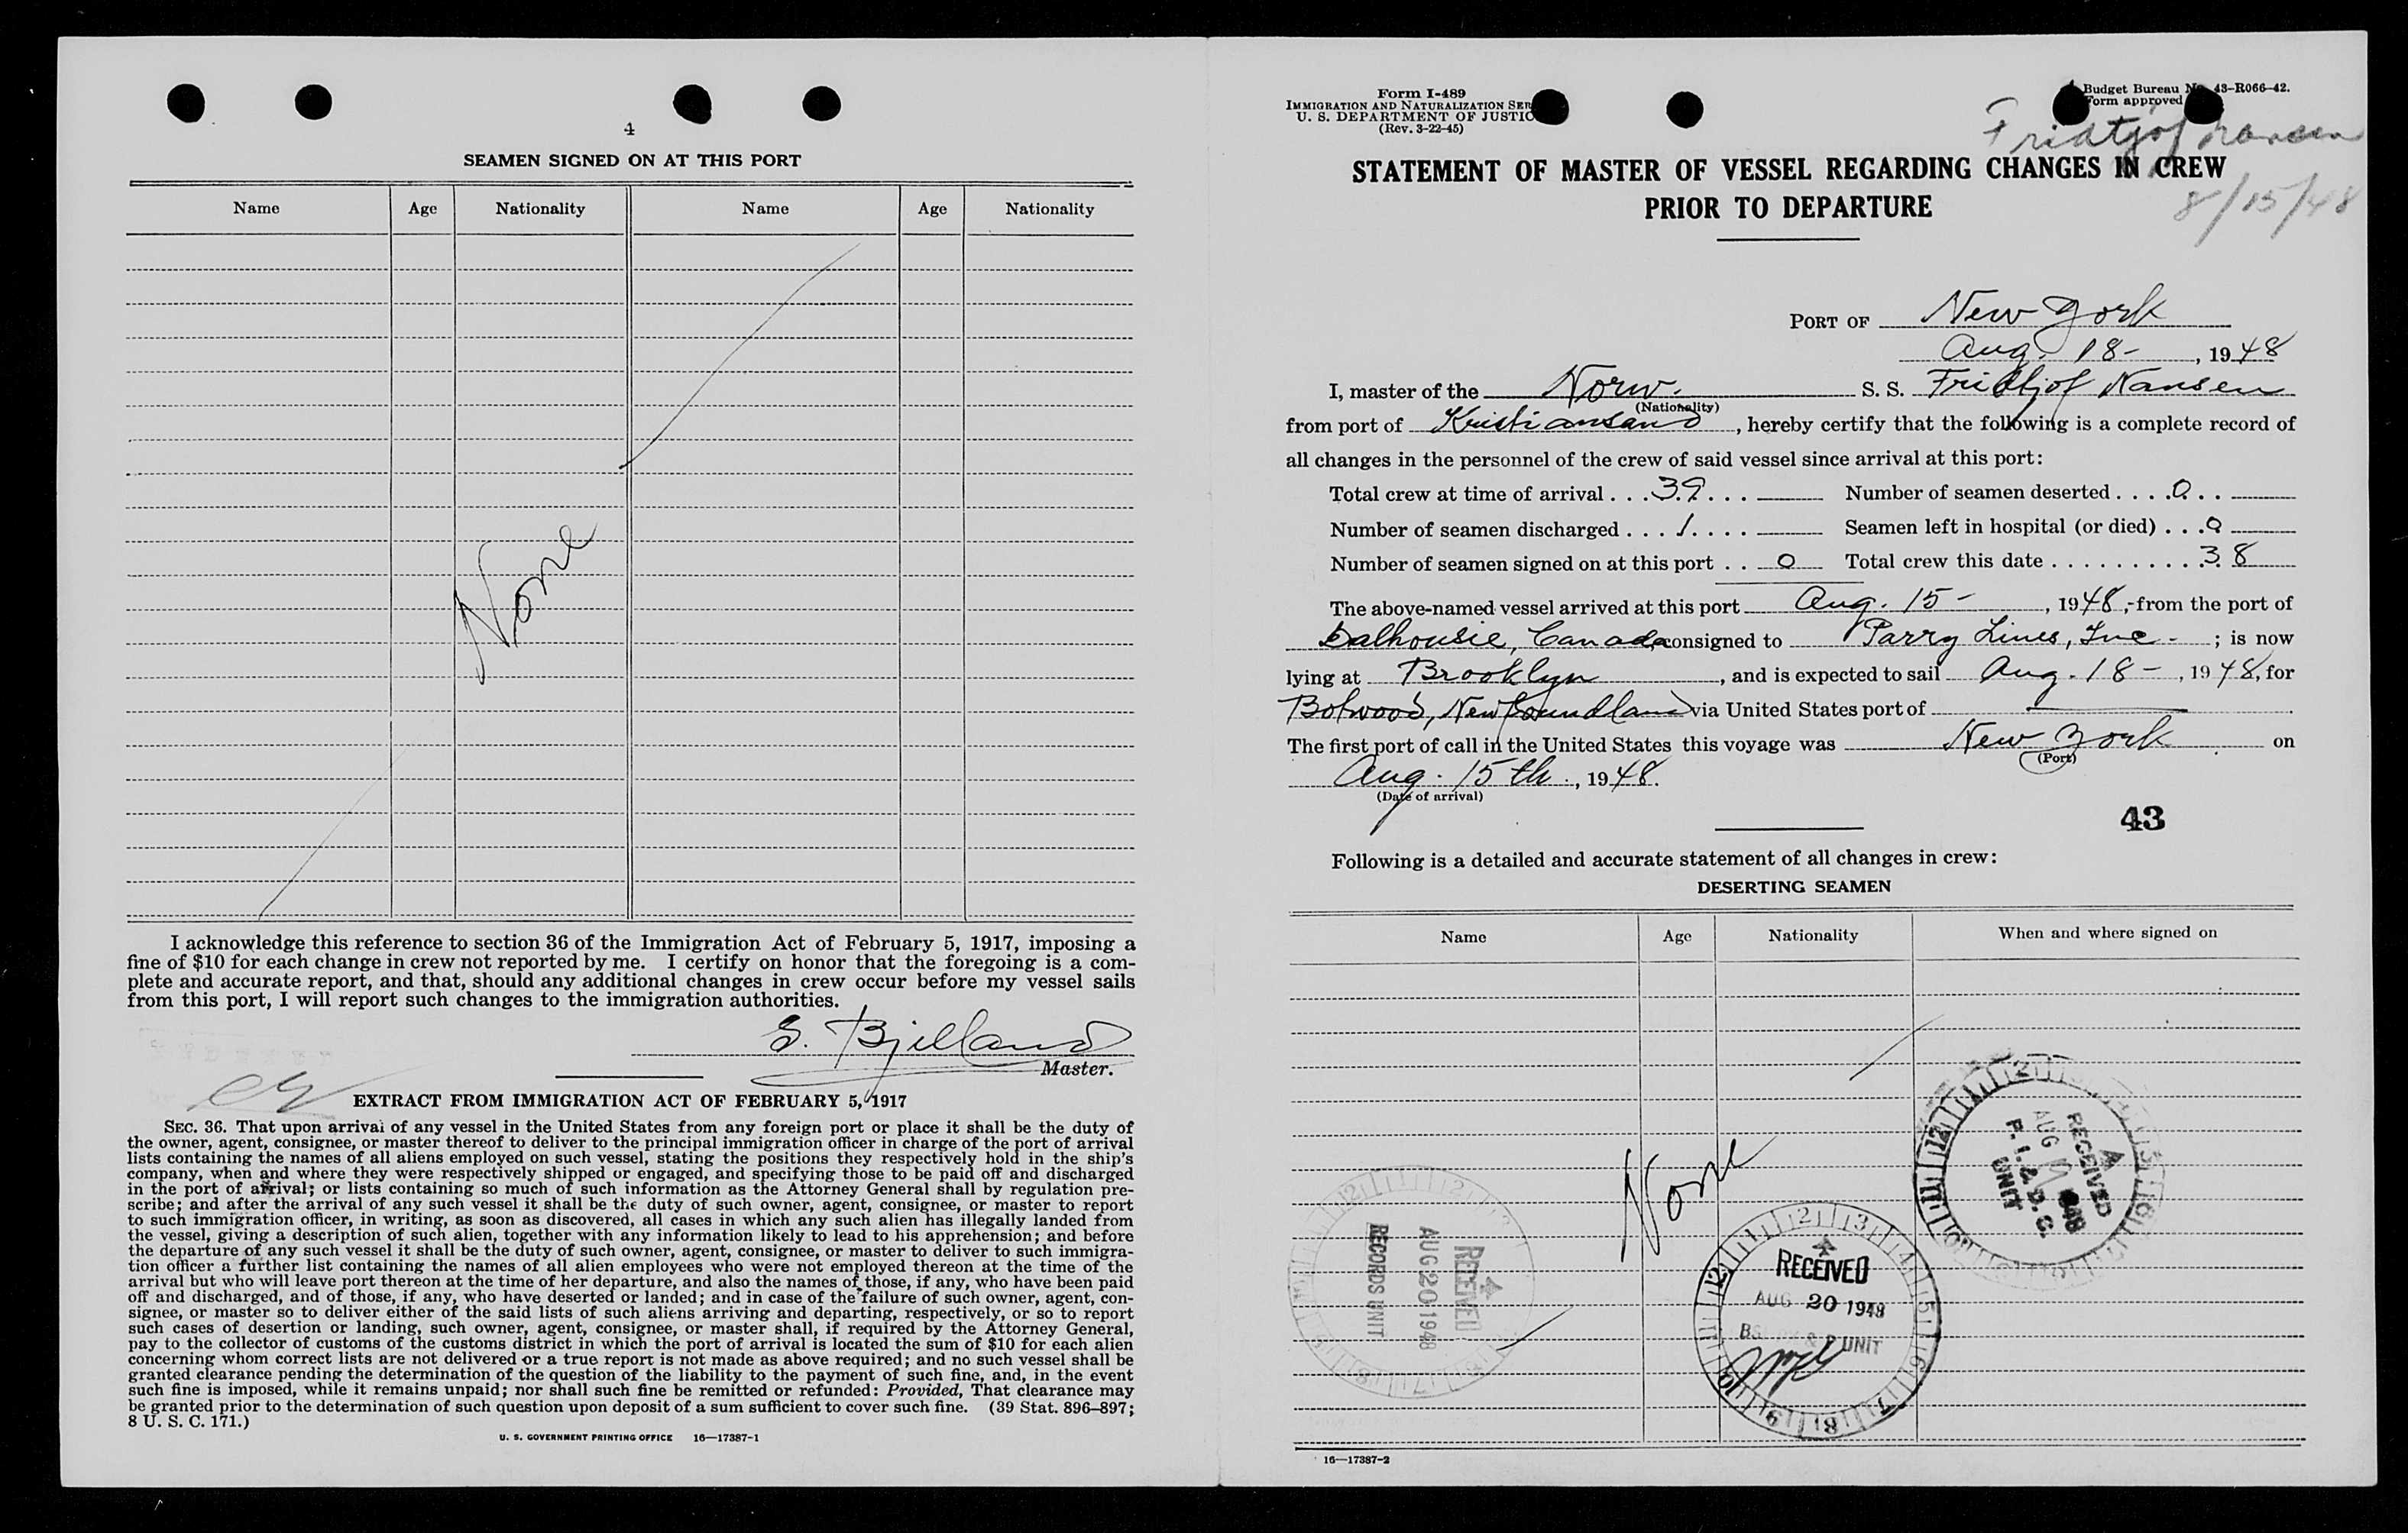 4
SEAMEN SIGNED ON AT THIS PORT
Name Age Nationality Name Age Nationality
None
I acknowledge this reference to section 36 of the Immigration Act of February 5, 1917, imposing a
fine of $10 for each change in crew not reported by me. I certify on honor that the foregoing is a com-
plete and accurate report, and that, should any additional changes in crew occur before my vessel sails
from this port, I will report such changes to the immigration authorities.
S. Bjelland
Master.
EXTRACT FROM IMMIGRATION ACT OF FEBRUARY 5, 1917
SEC. 36. That upon arrival of any vessel in the United States from any foreign port or place it shall be the duty of
the owner, agent, consignee, or master thereof to deliver to the principal immigration officer in charge of the port of arrival
lists containing the names of all aliens employed on such vessel, stating the positions they respectively hold in the ship's
company, when and where they were respectively shipped or engaged, and specifying those to be paid off and discharged
in the port of arrival; or lists containing so much of such information as the Attorney General shall by regulation pre-
scribe; and after the arrival of any such vessel it shall be the duty of such owner, agent, consignee, or master to report
to such immigration officer, in writing, as soon as discovered, all cases in which any such alien has illegally landed from
the vessel, giving a description of such alien, together with any information likely to lead to his apprehension; and before
the departure of any such vessel it shall be the duty of such owner, agent, consignee, or master to deliver to such immigra-
tion officer a further list containing the names of all alien employees who were not employed thereon at the time of the
arrival but who will leave port thereon at the time of her departure, and also the names of those, if any, who have been paid
off and discharged, and of those, if any, who have deserted or landed; and in case of the failure of such owner, agent, con-
signee, or master so to deliver either of the said lists of such aliens arriving and departing, respectively, or so to report
such cases of desertion or landing, such owner, agent, consignee, or master shall, if required by the Attorney General,
pay to the collector of customs of the customs district in which the port of arrival is located the sum of $10 for each alien
concerning whom correct lists are not delivered or a true report is not made as above required; and no such vessel shall be
granted clearance pending the determination of the question of the liability to the payment of such fine, and, in the event
such fine is imposed, while it remains unpaid; nor shall such fine be remitted or refunded: Provided, That clearance may
be granted prior to the determination of such question upon deposit of a sum sufficient to cover such fine. (39 Stat. 896–897;
8 U. S. C. 171.)
U. S. GOVERNMENT PRINTING OFFICE 16—17387-1
Form I-489
IMMIGRATION AND NATURALIZATION SER
U. S. DEPARTMENT OF JUSTIC
(Rev. 3-22-45)
Budget Bureau No. 43-R066-42.
Form approved
Fridtjof Nansen
8/15/48
STATEMENT OF MASTER OF VESSEL REGARDING CHANGES IN CREW
PRIOR TO DEPARTURE
PORT OF New York
Aug. 18-, 1948
I, master of the Norw. S. S. Fridtjof Nansen
(Nationality)
from port of Kristiansand, hereby certify that the following is a complete record of
all changes in the personnel of the crew of said vessel since arrival at this port:
Total crew at time of arrival . . . 39. . . Number of seamen deserted . . . . 0 . .
Number of seamen discharged . . . 1. . . . Seamen left in hospital (or died) . . . 0
Number of seamen signed on at this port . . 0 Total crew this date . . . . . . . . . . 38
The above-named vessel arrived at this port Aug. 15-, 1948, from the port of
Dalhousie, Canada, consigned to Parry Lines, Inc.; is now
lying at Brooklyn, and is expected to sail Aug. 18-, 1948, for
Botwood, Newfoundland via United States port of
The first port of call in the United States this voyage was New York on
(Port)
Aug. 15th, 1948.
(Date of arrival)
43
Following is a detailed and accurate statement of all changes in crew:
DESERTING SEAMEN
Name Age Nationality When and where signed on
None
RECEIVED
AUG 1948
P. I. & D. C.
UNIT
RECEIVED
AUG 20 1948
RECORDS UNIT
RECEIVED
AUG 20 1948
UNIT
16—17387-2